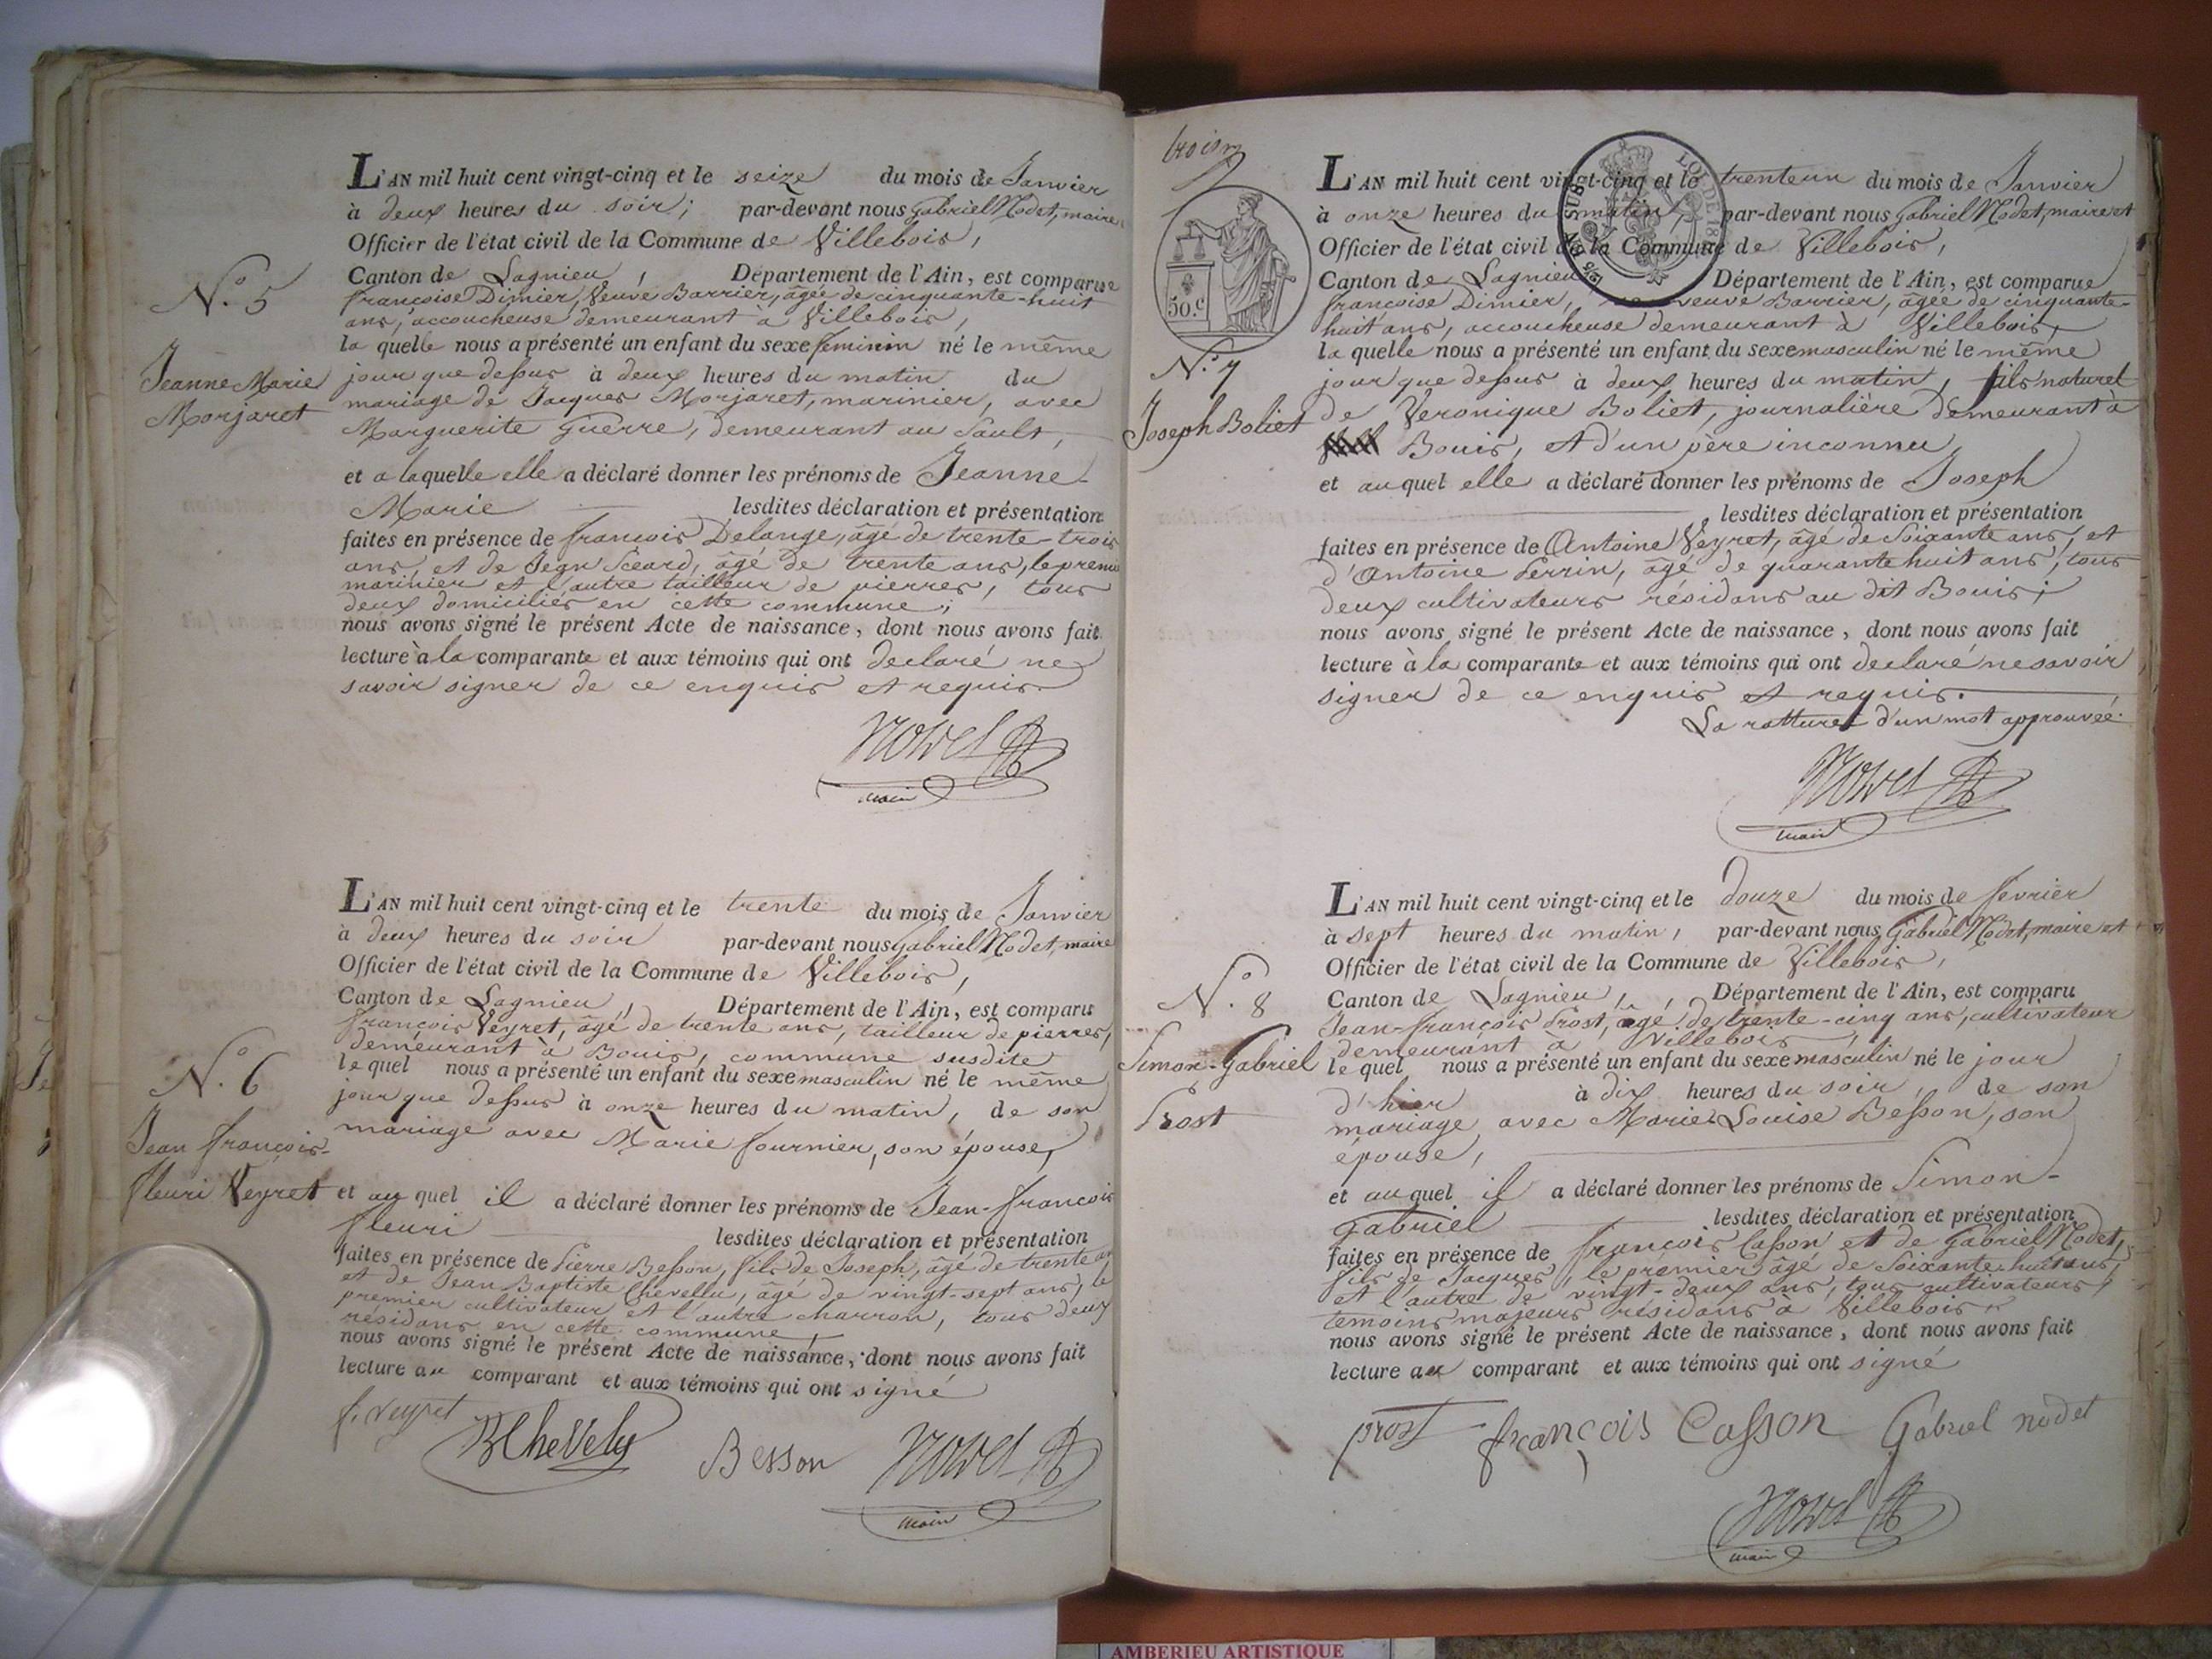 N.° 5
Jeanne Marie
Morjaret
L'AN mil huit cent vingt-cinq et le seize du mois de Janvier
à deux heures du soir; par-devant nous Gabriel Nodet, maire
Officier de l'état civil de la Commune de Villebois,
Canton de Lagnieu, Département de l'Ain, est comparue
françoise Dimier, Veuve Barrier, âgée de cinquante-huit
ans, accoucheuse demeurant à Villebois,
la quelle nous a présenté un enfant du sexe feminin né le même
jour que dessus à deux heures du matin du
mariage de Jacques Morjaret, marinier, avec
Marguerite Guerre, demeurant au Sault,
et a laquelle elle a déclaré donner les prénoms de Jeanne-
Marie lesdites déclaration et présentation
faites en présence de françois Delange, âgé de trente-trois
ans, et de Jean Sicard, âgé de trente ans, le premier
marinier et l'autre tailleur de pierres, tous
deux domiciliés en cette commune;
nous avons signé le présent Acte de naissance, dont nous avons fait
lecture à la comparante et aux témoins qui ont declaré ne
savoir signer de ce enquis et requis.
Nodet
maire
N.° 6
Jean françois-
fleuri Veyret
L'AN mil huit cent vingt-cinq et le trente du mois de Janvier
à deux heures du soir par-devant nous Gabriel Nodet, maire
Officier de l'état civil de la Commune de Villebois,
Canton de Lagnieu, Département de l'Ain, est comparu
françois Veyret, âgé de trente ans, tailleur de pierres,
demeurant à Bouis, commune susdite
le quel nous a présenté un enfant du sexe masculin né le même
jour que dessus à onze heures du matin, de son
mariage avec Marie fournier, son épouse,
et au quel il a déclaré donner les prénoms de Jean-françois
fleuri lesdites déclaration et présentation
faites en présence de Pierre Besson, fils de Joseph, âgé de trente ans
et de Jean Baptiste Chevellu, âgé de vingt-sept ans, le
premier cultivateur et l'autre charron, tous deux
résidans en cette commune,
nous avons signé le présent Acte de naissance, dont nous avons fait
lecture au comparant et aux témoins qui ont signé
f. veyret
BChevely Besson Nodet
maire
trois
50.c
N.° 7
Joseph Boliet
L'AN mil huit cent vingt-cinq et le trenteun du mois de Janvier
à onze heures du matin, par-devant nous Gabriel Nodet, maire et
Officier de l'état civil de la Commune de Villebois,
Canton de Lagnieu Département de l'Ain, est comparue
françoise Dimier, veuve Barrier, âgée de cinquante-
huit ans, accoucheuse demeurant à Villebois,
la quelle nous a présenté un enfant du sexe masculin né le même
jour que dessus à deux heures du matin, fils naturel
de Veronique Boliet, journalière demeurant à
Bouis, et d'un père inconnu
et au quel elle a déclaré donner les prénoms de Joseph
lesdites déclaration et présentation
faites en présence de Antoine Veyret, âgé de Soixante ans, et
d'Antoine Perrin, âgé de quarante huit ans, tous
deux cultivateurs résidans au dit Bouis;
nous avons signé le présent Acte de naissance, dont nous avons fait
lecture à la comparante et aux témoins qui ont declaré ne savoir
signer de ce enquis et requis.
Laratture d'un mot approuvée.
Nodet
maire
N.° 8
Simon-Gabriel
Prost
L'AN mil huit cent vingt-cinq et le douze du mois de fevrier
à sept heures du matin, par-devant nous Gabriel Nodet, maire et
Officier de l'état civil de la Commune de Villebois,
Canton de Lagnieu, Département de l'Ain, est comparu
Jean-françois Prost, âgé de trente-cinq ans, cultivateur
demeurant à Villebois,
le quel nous a présenté un enfant du sexe masculin né le jour
d'hier à dix heures du soir, de son
mariage avec Marie Louise Besson, son
épouse,
et au quel il a déclaré donner les prénoms de Simon-
Gabriel lesdites déclaration et présentation
faites en présence de françois Casson et de Gabriel Nodet,
fils de Jacques, le premier âgé de Soixante-huit ans,
et l'autre de vingt-deux ans, tous cultivateurs,
temoins majeurs résidans à Villebois
nous avons signé le présent Acte de naissance, dont nous avons fait
lecture au comparant et aux témoins qui ont signé
prost françois Casson Gabriel nodet
Nodet
maire
AMBERIEU ARTISTIQUE